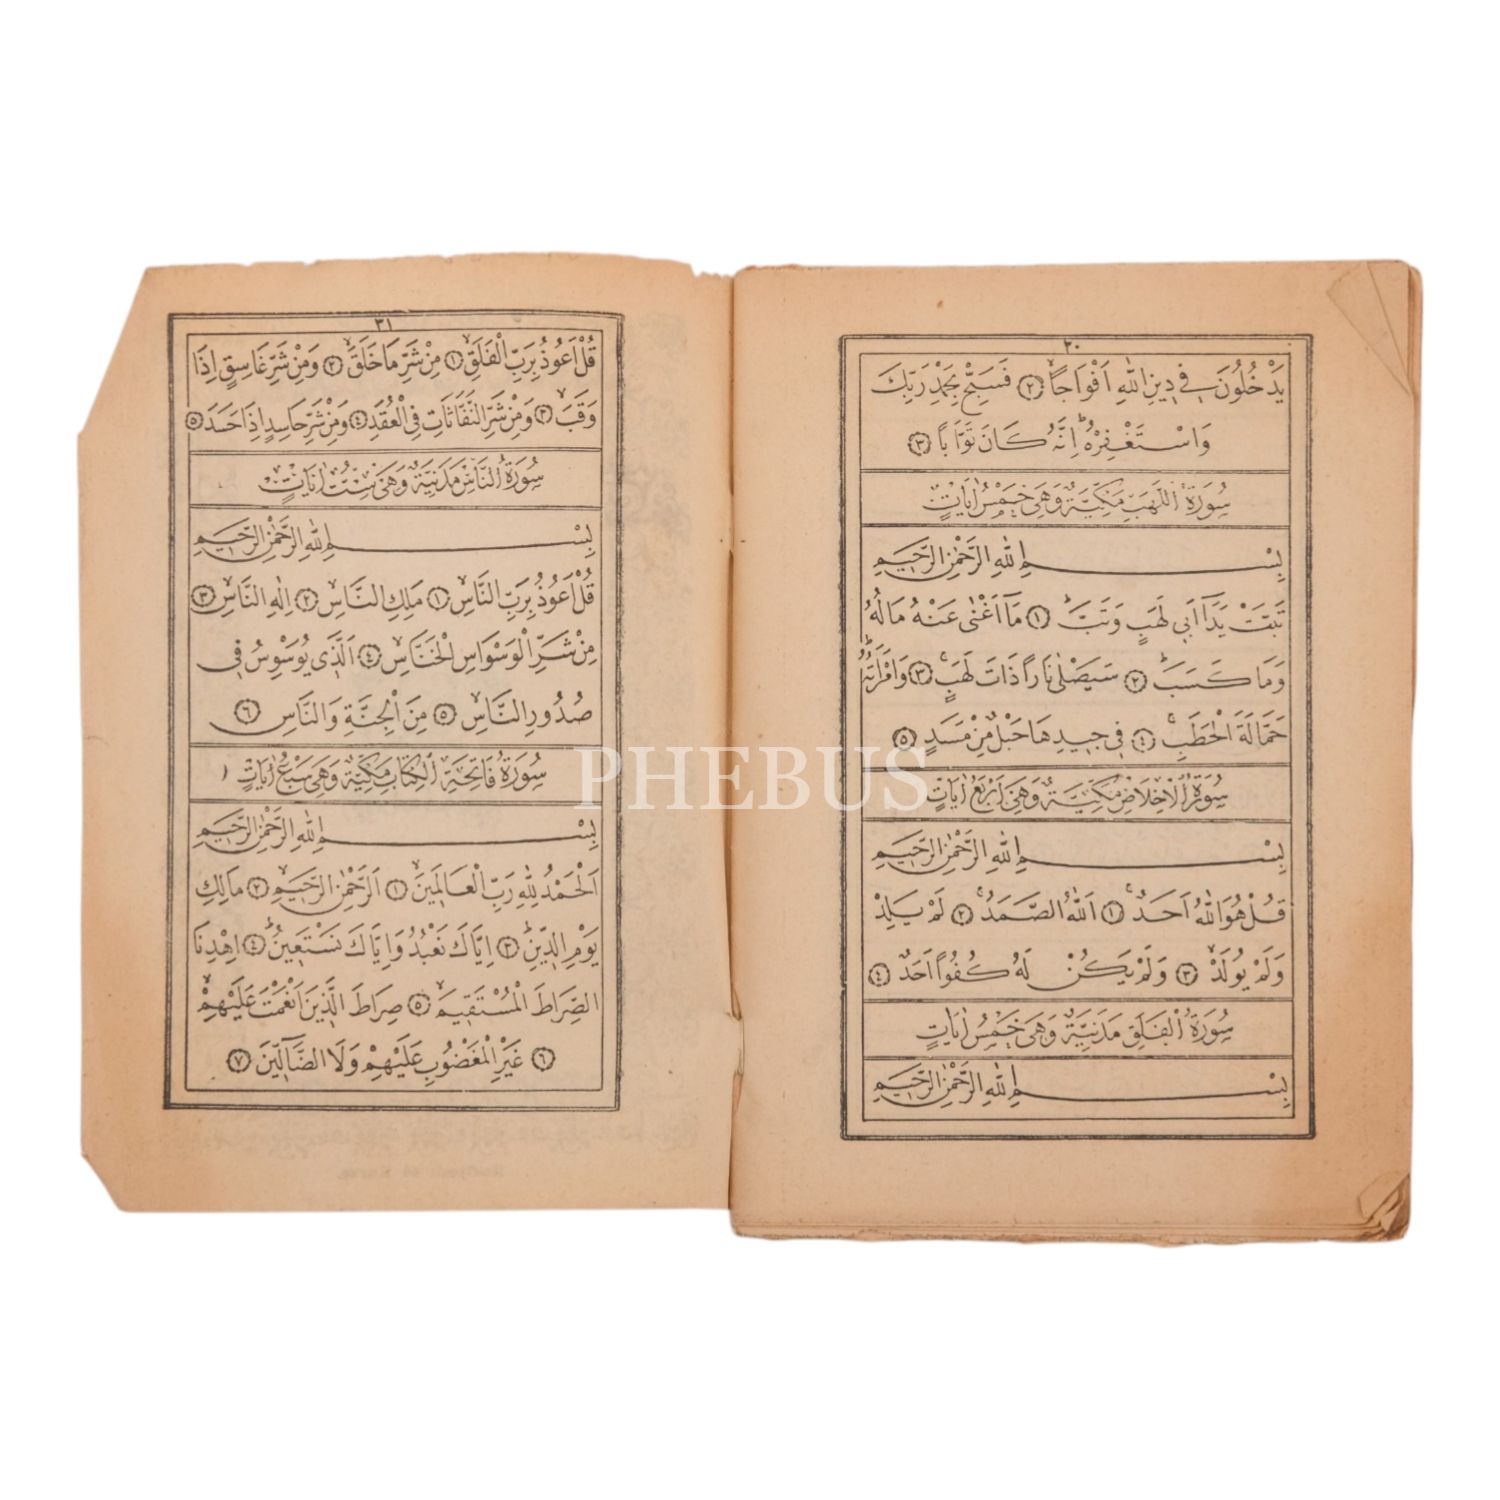 ٣٠
يَدْخُلُونَ فِي دِينِ اللّٰهِ اَفْوَاجًا ﴿٢﴾ فَسَبِّحْ بِحَمْدِ رَبِّكَ
وَاسْتَغْفِرْهُ اِنَّهُ كَانَ تَوَّابًا ﴿٣﴾
سُورَةُ اللَّهَبِ مَكِّيَّةٌ وَهِيَ خَمْسُ اٰيَاتٍ
بِسْمِ اللّٰهِ الرَّحْمٰنِ الرَّحِيمِ
تَبَّتْ يَدَآ اَبِي لَهَبٍ وَتَبَّ ﴿١﴾ مَآ اَغْنٰى عَنْهُ مَالُهُ
وَمَا كَسَبَ ﴿٢﴾ سَيَصْلٰى نَارًا ذَاتَ لَهَبٍ ﴿٣﴾ وَامْرَاَتُهُ
حَمَّالَةَ الْحَطَبِ ﴿٤﴾ فِي جِيدِهَا حَبْلٌ مِنْ مَسَدٍ ﴿٥﴾
سُورَةُ الْاِخْلَاصِ مَكِّيَّةٌ وَهِيَ اَرْبَعُ اٰيَاتٍ
بِسْمِ اللّٰهِ الرَّحْمٰنِ الرَّحِيمِ
قُلْ هُوَ اللّٰهُ اَحَدٌ ﴿١﴾ اَللّٰهُ الصَّمَدُ ﴿٢﴾ لَمْ يَلِدْ
وَلَمْ يُولَدْ ﴿٣﴾ وَلَمْ يَكُنْ لَهُ كُفُوًا اَحَدٌ ﴿٤﴾
سُورَةُ الْفَلَقِ مَدَنِيَّةٌ وَهِيَ خَمْسُ اٰيَاتٍ
بِسْمِ اللّٰهِ الرَّحْمٰنِ الرَّحِيمِ
٣١
قُلْ اَعُوذُ بِرَبِّ الْفَلَقِ ﴿١﴾ مِنْ شَرِّ مَا خَلَقَ ﴿٢﴾ وَمِنْ شَرِّ غَاسِقٍ اِذَا
وَقَبَ ﴿٣﴾ وَمِنْ شَرِّ النَّفَّاثَاتِ فِي الْعُقَدِ ﴿٤﴾ وَمِنْ شَرِّ حَاسِدٍ اِذَا حَسَدَ ﴿٥﴾
سُورَةُ النَّاسِ مَدَنِيَّةٌ وَهِيَ سِتُّ اٰيَاتٍ
بِسْمِ اللّٰهِ الرَّحْمٰنِ الرَّحِيمِ
قُلْ اَعُوذُ بِرَبِّ النَّاسِ ﴿١﴾ مَلِكِ النَّاسِ ﴿٢﴾ اِلٰهِ النَّاسِ ﴿٣﴾
مِنْ شَرِّ الْوَسْوَاسِ الْخَنَّاسِ ﴿٤﴾ اَلَّذِي يُوَسْوِسُ فِي
صُدُورِ النَّاسِ ﴿٥﴾ مِنَ الْجِنَّةِ وَالنَّاسِ ﴿٦﴾
سُورَةُ فَاتِحَةِ الْكِتَابِ مَكِّيَّةٌ وَهِيَ سَبْعُ اٰيَاتٍ
بِسْمِ اللّٰهِ الرَّحْمٰنِ الرَّحِيمِ
اَلْحَمْدُ لِلّٰهِ رَبِّ الْعَالَمِينَ ﴿١﴾ اَلرَّحْمٰنِ الرَّحِيمِ ﴿٢﴾ مَالِكِ
يَوْمِ الدِّينِ ﴿٣﴾ اِيَّاكَ نَعْبُدُ وَاِيَّاكَ نَسْتَعِينُ ﴿٤﴾ اِهْدِنَا
الصِّرَاطَ الْمُسْتَقِيمَ ﴿٥﴾ صِرَاطَ الَّذِينَ اَنْعَمْتَ عَلَيْهِمْ
﴿٦﴾ غَيْرِ الْمَغْضُوبِ عَلَيْهِمْ وَلَا الضَّآلِّينَ ﴿٧﴾
PHEBUS